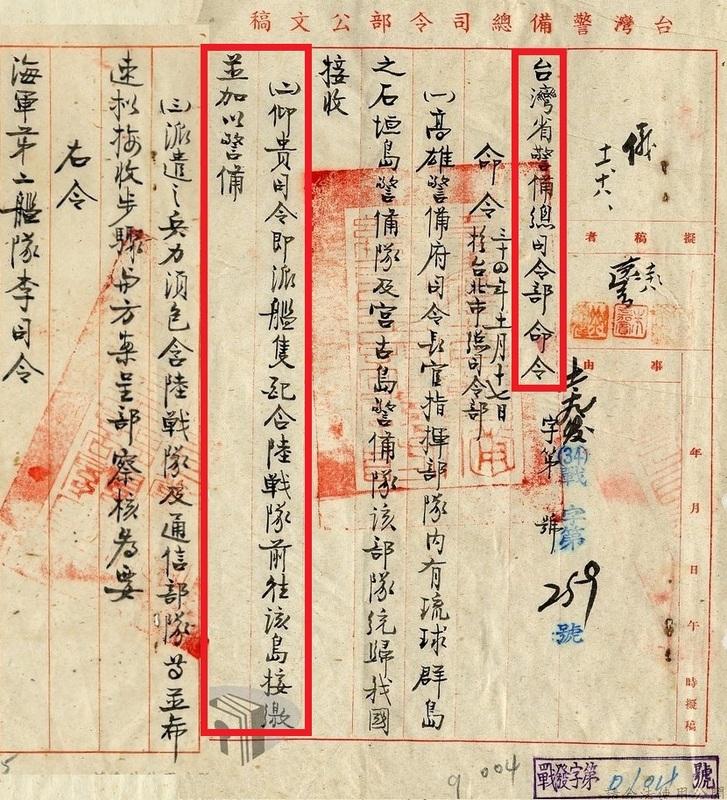 台灣警備總司令部公文稿
擬稿者
事由
年月日午時擬稿
儀
十一、十八、
台灣省警備總司令部命令
字第 號
(34)戰字第259號
命令
三十四年十一月十七日
於台北市總司令部
㈠高雄警備府司令長官指揮部隊內有琉球群島
之石垣島警備隊及宮古島警備隊該部隊統歸我國
接收
㈡仰貴司令即派艦隻配合陸戰隊前往該島接繳
並加以警備
㈢派遣之兵力須包含陸戰隊及通信部隊等並希
速擬接收步驟與方案呈部察核為要
右令
海軍第二艦隊李司令
9 004
戰發字第0104號